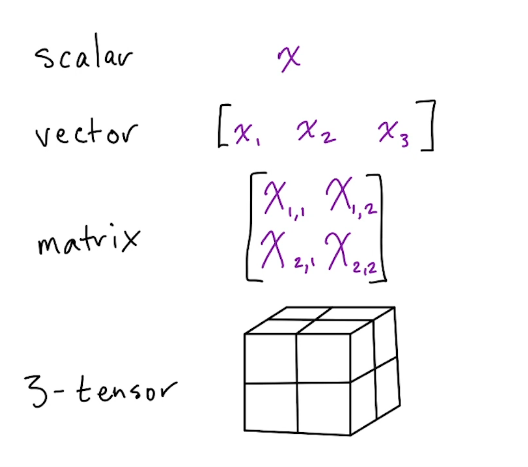 scalar x
vector [x₁ x₂ x₃]
matrix [X₁,₁ X₁,₂
X₂,₁ X₂,₂]
3-tensor